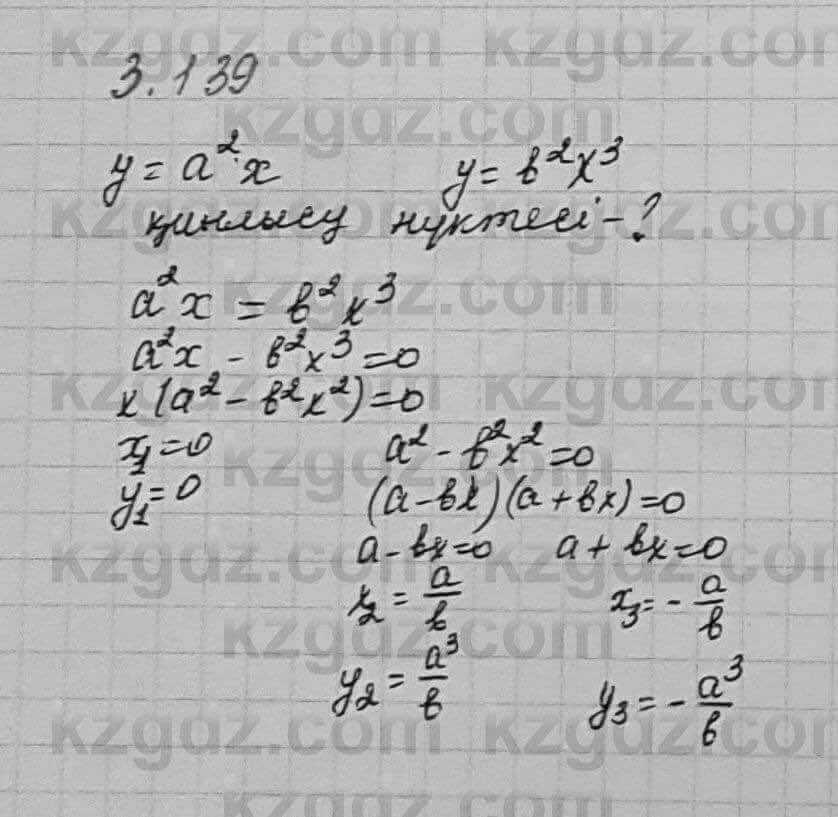 3.139
y = a²·x y = b²x³
қиылысу нүктесі - ?
a²x = b²x³
a²x - b²x³ = 0
x(a² - b²x²) = 0
x₁ = 0 a² - b²x² = 0
y₁ = 0 (a - bx)(a + bx) = 0
a - bx = 0 a + bx = 0
x₂ = a/b x₃ = - a/b
y₂ = a³/b y₃ = - a³/b
kzgdz.com